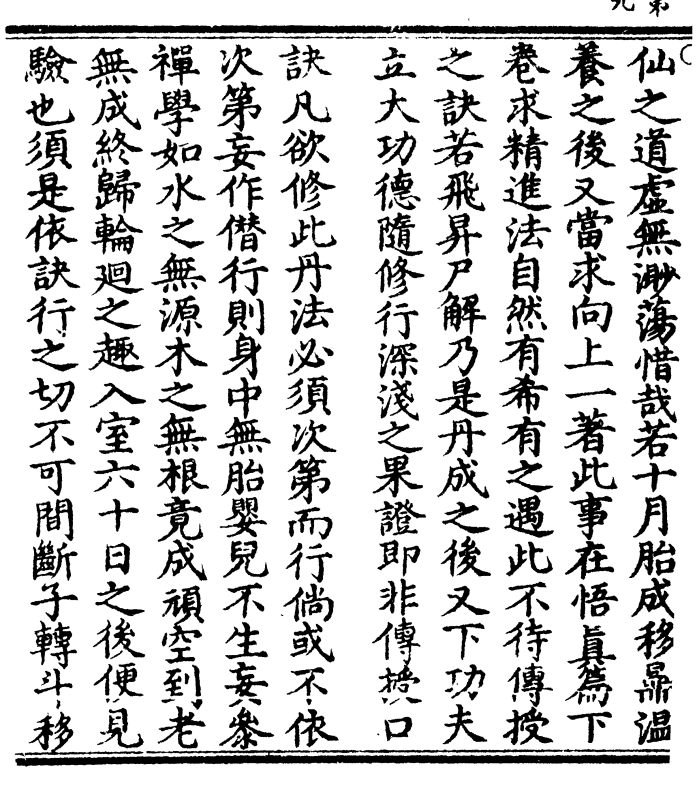 仙之道虛無渺蕩惜哉若十月胎成移鼎温
養之後又當求向上一著此事在悟眞篇下
卷求精進法自然有希有之遇此不待傳授
之訣若飛昇尸解乃是丹成之後又下功夫
立大功德隨修行深淺之果證即非傳授口
訣凡欲修此丹法必須次第而行倘或不依
次第妄作僭行則身中無胎嬰兒不生妄叅
禪學如水之無源木之無根竟成頑空到老
無成終歸輪廻之趣入室六十日之後便見
驗也須是依訣行之切不可間斷子轉斗移